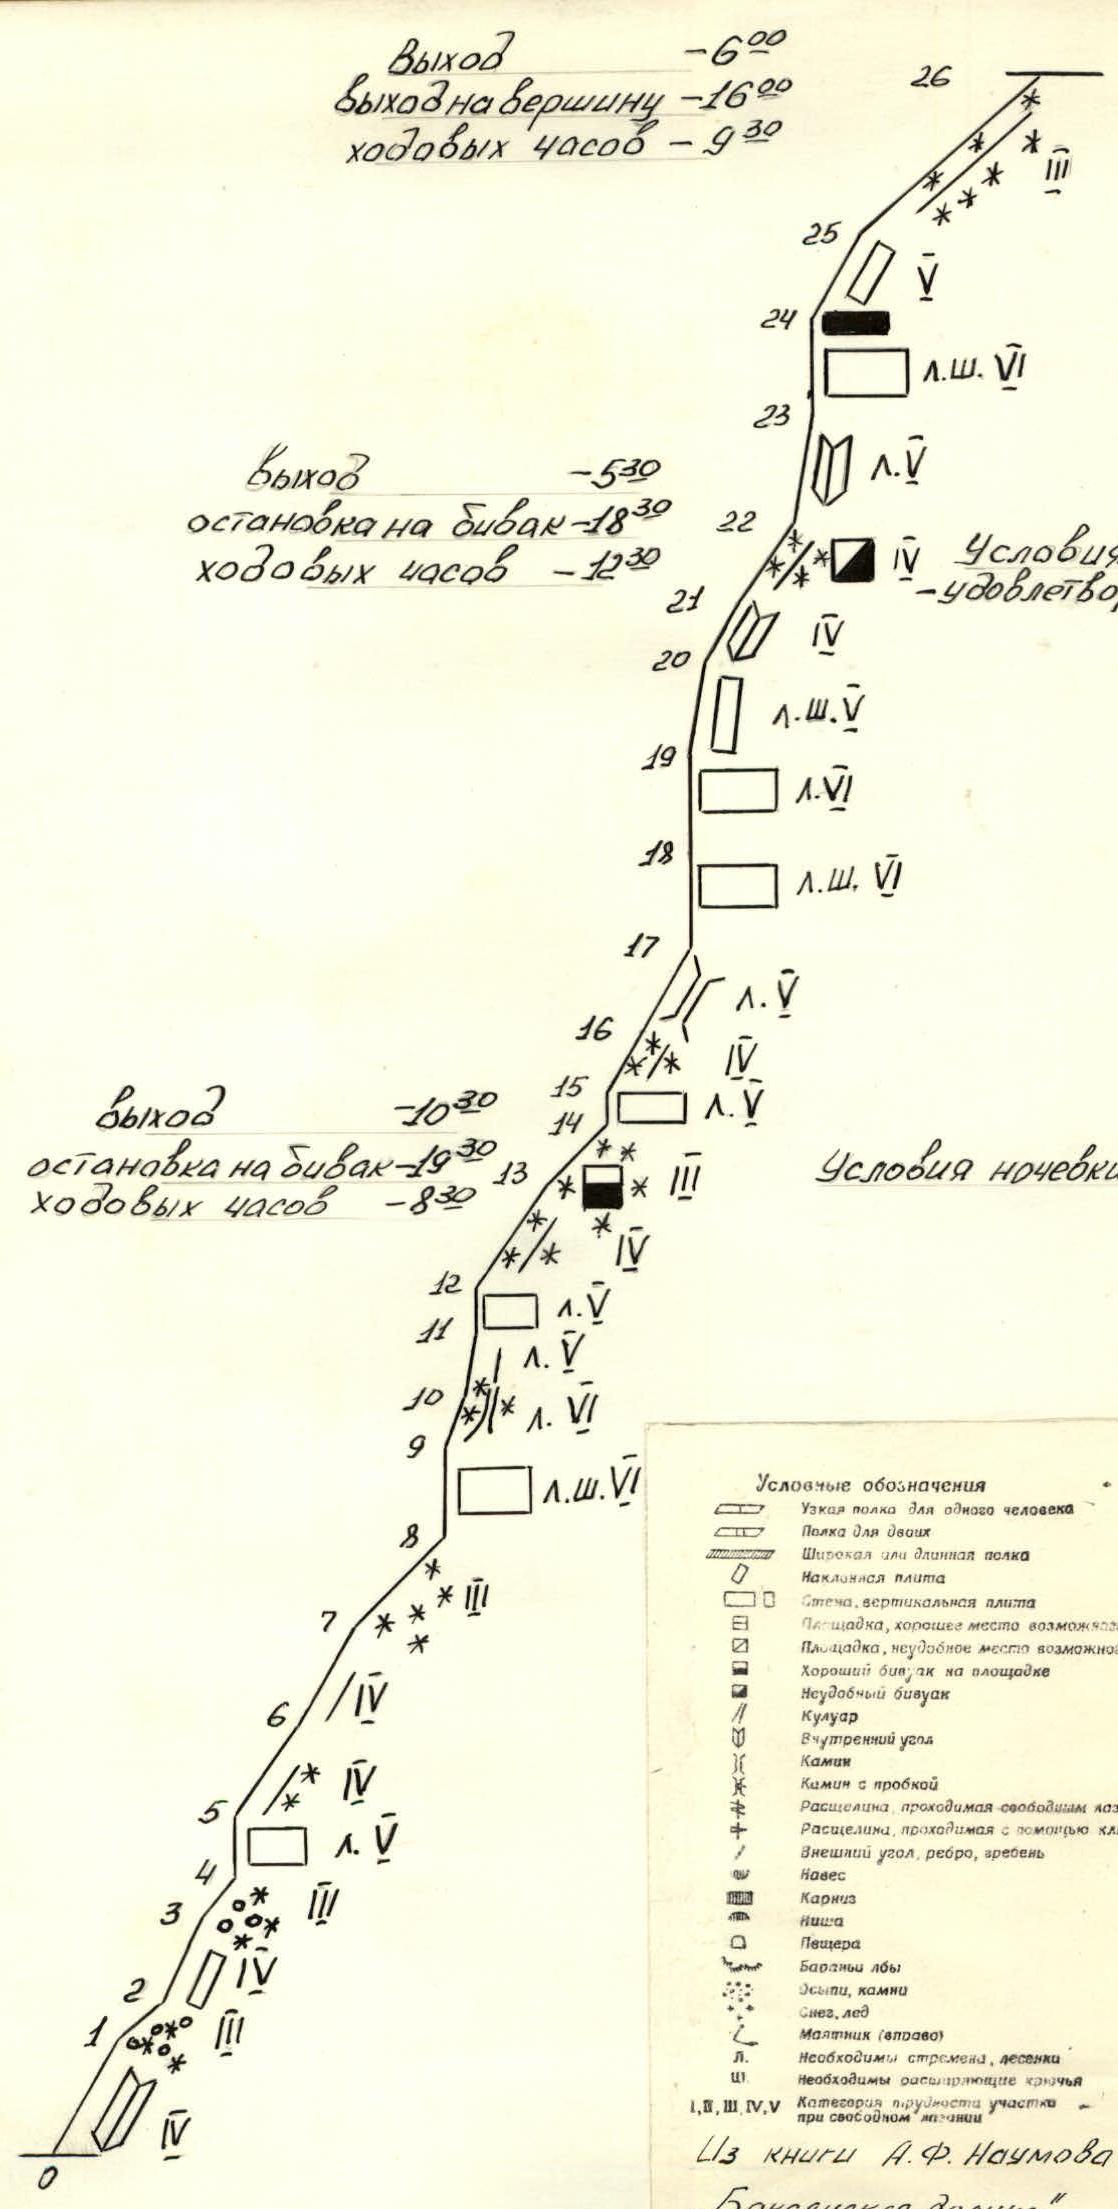 Выход -6⁰⁰
выход на вершину -16⁰⁰
ходовых часов - 9³⁰
26
III
25
V
24
Л.Ш. VI
23
Л.V
Выход -5³⁰
остановка на бивак -18³⁰
ходовых часов -12³⁰
22
IV Условия
21
IV
20
Л.Ш.V
19
Л.VI
18
Л.Ш. VI
17
Л. V
16
IV
15
Л. V
14
выход -10³⁰
остановка на бивак -19³⁰
ходовых часов -8³⁰
13
III
Условия ночевки
IV
12
Л.V
11
Л. V
10
Л. VI
9
Л.Ш.VI
8
III
7
IV
6
IV
5
Л. V
4
III
3
IV
2
III
1
IV
0
Условные обозначения
Узкая полка для одного человека
Полка для двоих
Широкая или длинная полка
Наклонная плита
Стена, вертикальная плита
Площадка, хорошее место
Площадка, неудобное место
Хороший бивуак на площадке
Неудобный бивуак
Кулуар
Внутренний угол
Камин
Камин с пробкой
Расщелина, проходимая свободным
Расщелина, проходимая с помощью
Внешний угол, ребро, гребень
Навес
Карниз
Ниша
Пещера
Бараньи лбы
Осыпи, камни
Снег, лед
Маятник (вправо)
Л. Необходимы стремена, лесенки
Ш. Необходимы расширяющие крючья
I, II, III, IV, V Категория трудности участка
при свободном лазании
Из книги А.Ф. Наумова